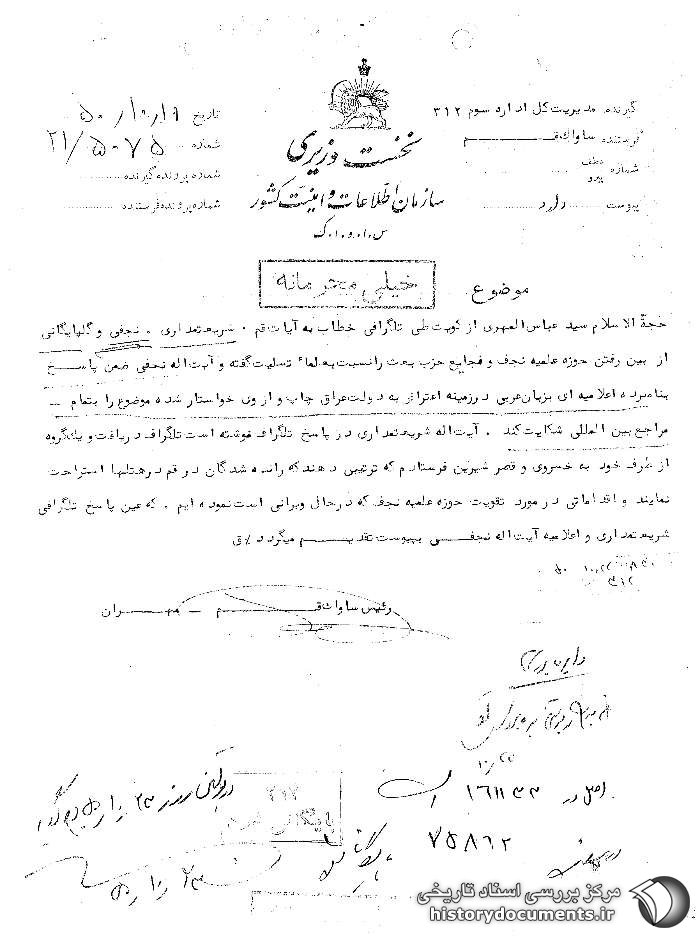 گیرنده مدیریت کل اداره سوم ۳۱۲
فرستنده ساواک قم
شماره عطف پیرو
پیوست دارد
نخست وزیری
سازمان اطلاعات و امنیت کشور
س.ا.و.ا.ک
تاریخ
شماره ۲۱/۵۰۷۵
شماره پرونده گیرنده
شماره پرونده فرستنده
خیلی محرمانه
موضوع
حجة الاسلام سید عباس المهری از کویت طی تلگرافی خطاب به آیات قم . شریعتمداری . نجفی و گلپایگانی
از بین رفتن حوزه علمیه نجف و فجایع حزب بعث را نسبت به علماء تسلیت گفته و آیت اله نجفی ضمن پاسخ
بنامبرده اعلامیه ای بزبان عربی در زمینه اعتراز به دولت عراق چاپ و از وی خواستار شده موضوع را بتمام
مراجع بین المللی شکایت کند . آیت اله شریعتمداری در پاسخ تلگراف نوشته است تلگراف دریافت و یکگروه
از طرف خود به خسروی و قصر شیرین فرستادم که ترتیبی دهند که رانده شدگان در قم در هتلها استراحت
نمایند و اقداماتی در مورد تقویت حوزه علمیه نجف که در حال ویرانی است نموده ایم . که عین پاسخ تلگرافی
شریعتمداری و اعلامیه آیت اله نجفی بپیوست تقدیم میگردد/ق
۳۱۲
رئیس ساواک قم – مهران
۱۰/۲۲
اصل در ۱۶۱۱۳۳
۷۵۸۶۲
۳۱۲
بایگانی شد
مرکز بررسی اسناد تاریخی
historydocuments.ir